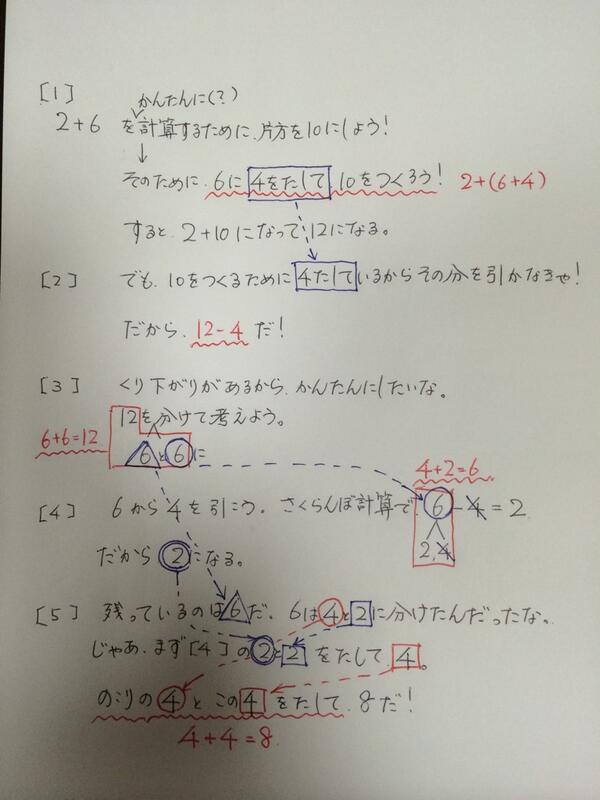 [1]
かんたんに(?)
2+6 を計算するために、片方を10にしよう!
そのために、6に4をたして、10をつくろう! 2+(6+4)
すると、2+10になって12になる。
[2] でも、10をつくるために4たしているからその分を引かなきゃ!
だから、12-4だ!
[3] くり下がりがあるから、かんたんにしたいな。
12を分けて考えよう。
6+6=12
6と6に
4+2=6
[4] 6から4を引こう。さくらんぼ計算で、6-4=2
2 4
だから2になる。
[5] 残っているのは6だ。6は4と2に分けたんだったな。
じゃあ、まず[4]の2と2をたして、4。
のこりの4とこの4をたして、8だ!
4+4=8